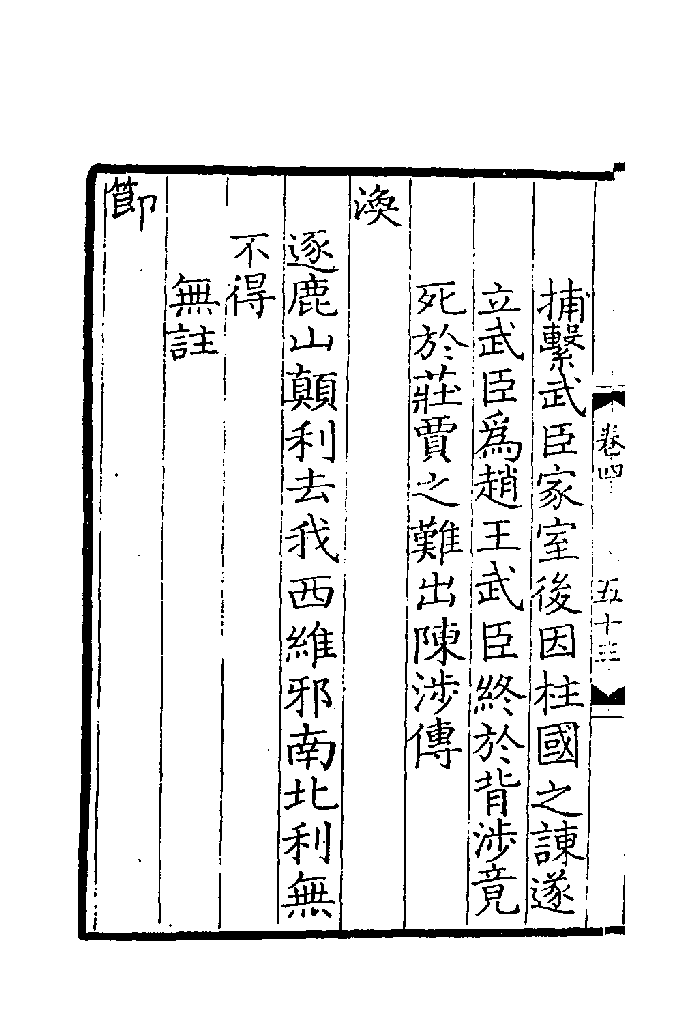 卷四 五十三
捕繫武臣家室後因柱國之諫遂
立武臣爲趙王武臣終於背涉竟
死於莊賈之難出陳涉傳
渙
逐鹿山顛利去我西維邪南北利無
不得
無註
節